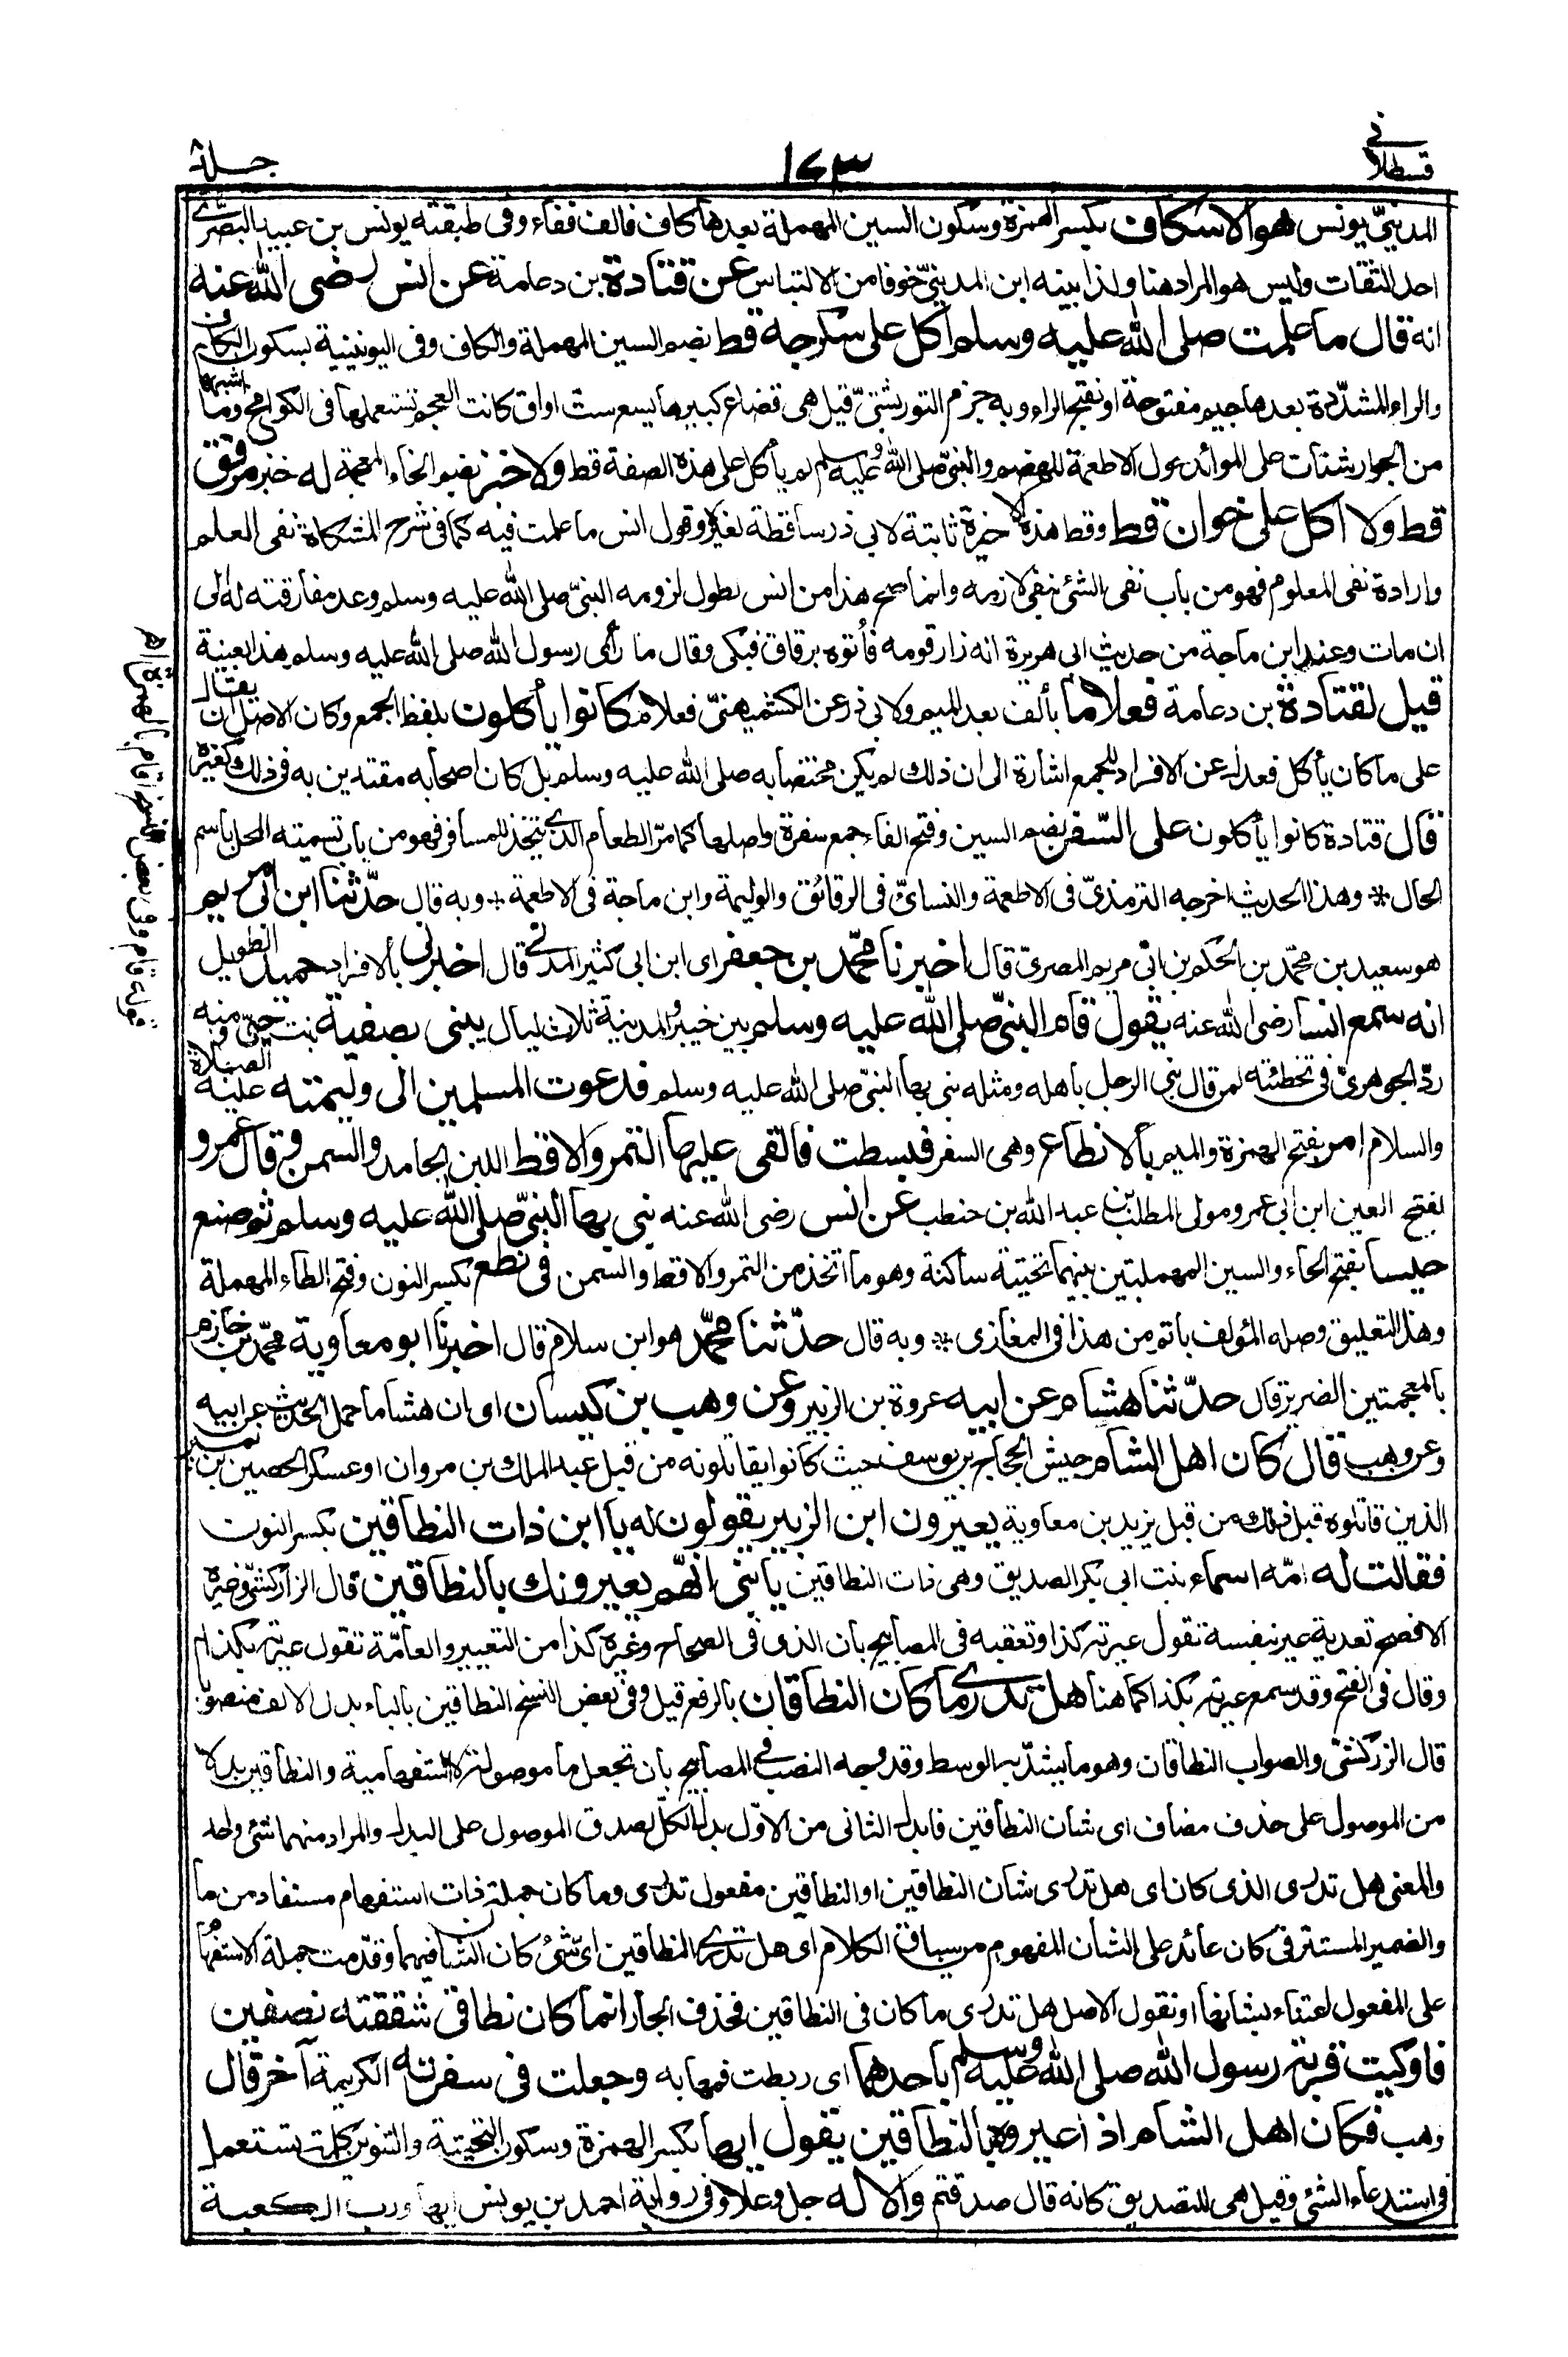 قسطلانى
١٧٣
جلد ٨
المدينىّ يونس هو الاسكاف بكسر الهمزة وسكون السين المهملة بعدها كاف فالف ففاء وفى طبقته يونس بن عبيد البصرى
احد الثقات وليس هو المراد هنا ولذا بينه ابن المدينىّ خوفا من الالتباس عن قتادة بن دعامة عن انس رضى الله عنه
انه قال ما علمت صلى الله عليه وسلم اكل على سكرجة قط بضم السين المهملة والكاف وفى اليونينية بسكون الكاف
والراء المشدّدة بعدها جيم مفتوحة او بفتح الراء وبه جزم التوربشتىّ قيل هى قصاع كبيرها يسع ست اواق كانت العجم تستعملها فى الكوامخ وما اشبهها
من الجوارشنات على الموائد حول الاطعمة للهضم والنبىّ صلى الله عليه وسلم لم يأكل على هذه الصفة قط ولا خبز بضم الخاء المعجمة له خبز مرقق
قط ولا اكل على خوان قط وقط هذه الاخيرة ثابتة لابى ذر ساقطة لغيره وقول انس ما علمت فيه كما فى شرح المشكاة نفى العلم
وارادة نفى المعلوم فهو من باب نفى الشئ بنفى لازمه وانما صح هذا من انس لطول لزومه النبىّ صلى الله عليه وسلم وعدم مفارقته له الى
ان مات وعند ابن ماجة من حديث ابى هريرة انه زار قومه فأتوه برقاق فبكى وقال ما رأى رسول الله صلى الله عليه وسلم هذا بعينه
قيل لقتادة بن دعامة فعلاما بألف بعد الميم ولابى ذر عن الكشميهنىّ فعلام كانوا يأكلون بلفظ الجمع وكان الاصل ان يقال
على ما كان يأكل فعدل عن الافراد للجمع اشارة الى ان ذلك لم يكن مختصا به صلى الله عليه وسلم بل كان اصحابه مقتدين به فى ذلك كغيره
قال قتادة كانوا يأكلون على السفر بضم السين وفتح الفاء جمع سفرة واصلها كما مرّ الطعام الذى يتخذ للمسافر فهو من باب تسمية المحل باسم
الحال * وهذا الحديث اخرجه الترمذىّ فى الاطعمة والنسائىّ فى الرقائق والوليمة وابن ماجة فى الاطعمة * وبه قال حدّثنا ابن ابى مريم
هو سعيد بن محمد بن الحكم بن ابى مريم المصرىّ قال اخبرنا محمّد بن جعفر اى ابن ابى كثير المدنى قال اخبرنى بالافراد حميد الطويل
انه سمع انسا رضى الله عنه يقول قام النبىّ صلى الله عليه وسلم بين خيبر والمدينة ثلاث ليال يبنى بصفية بنت حيى وفيه
ردّ الجوهرىّ فى تخطئته لمن قال بنى الرجل بأهله ومثله بنى بها النبىّ صلى الله عليه وسلم فدعوت المسلمين الى وليمته عليه الصلاة
والسلام امر بفتح الهمزة والميم بالانطاع وهى السفر فبسطت فألقى عليها التمر والاقط اللبن الجامد والسمن وقال عمرو
بفتح العين ابن ابى عمرو مولى المطلب بن عبد الله بن حنطب عن انس رضى الله عنه بنى بها النبىّ صلى الله عليه وسلم ثم صنع
حيسا بفتح الحاء والسين المهملتين بينهما تحتية ساكنة وهو ما اتخذ من التمر والاقط والسمن فى نطع بكسر النون وفتح الطاء المهملة
وهذا التعليق وصله المؤلف باتم من هذا فى المغازى * وبه قال حدّثنا محمّد هو ابن سلام قال اخبرنا ابو معاوية محمّد بن خازم
بالمعجمتين الضرير قال حدّثنا هشام عن ابيه عروة بن الزبير وعن وهب بن كيسان اى ان هشاما حمل الحديث عن ابيه
وعن وهب قال كان اهل الشام جيش الحجاج بن يوسف حيث كانوا يقاتلونه من قبل عبد الملك بن مروان او عسكر الحصين بن نمير
الذين قاتلوه قبل ذلك من قبل يزيد بن معاوية يعيرون ابن الزبير يقولون له يا ابن ذات النطاقين بكسر النون
فقالت له امّه اسماء بنت ابى بكر الصديق وهى ذات النطاقين يا بنى انهم يعيرونك بالنطاقين قال الزركشىّ وغيره
الافصح تعدية عير بنفسه تقول عيرته كذا وتعقبه فى المصابيح بان الذى فى الصحاح وغيره كذا من التعيير والعامّة تقول عيرته بكذا اه
وقال فى الفتح وقد سمع عيرته بكذا كما هنا هل تدرى ما كان النطاقان بالرفع قيل وفى بعض النسخ النطاقين بالياء بدل الالف منصوبا
قال الزركشىّ والصواب النطاقان وهو ما يشدّ به الوسط وقد وجه النصب فى المصابيح بان تجعل ما موصولة لا استفهامية والنطاقين بدلا
من الموصول على حذف مضاف اى شان النطاقين فابدل الثانى من الاوّل بدل الكلّ لصدق الموصول على البدل والمراد منهما شئ واحد
والمعنى هل تدرى الذى كان اى هل تدرى شان النطاقين او النطاقين مفعول تدرى وما كان جملة ذات استفهام مستفاد من ما
والضمير المستتر فى كان عائد على الشان المفهوم من سياق الكلام اى هل تدرى النطاقين اىّ شئ كان الشان فيهما وقدّمت جملة الاستفهام
على المفعول اعتناء بشانها او نقول الاصل هل تدرى ما كان فى النطاقين فحذف الجار انما كان نطاقى شققته نصفين
فاوكيت قربة رسول الله صلى الله عليه وسلم باحدهما اى ربطت فمها به وجعلت فى سفرته الكريمة آخر قال
وهب فكان اهل الشام اذا عيروه بالنطاقين يقول ايها بكسر الهمزة وسكون التحتية والتنوين كلمة تستعمل
فى استدعاء الشئ وقيل هى للتصديق كانه قال صدقتم والاله جل وعلا وفى رواية احمد بن يونس ايها ورب الكعبة